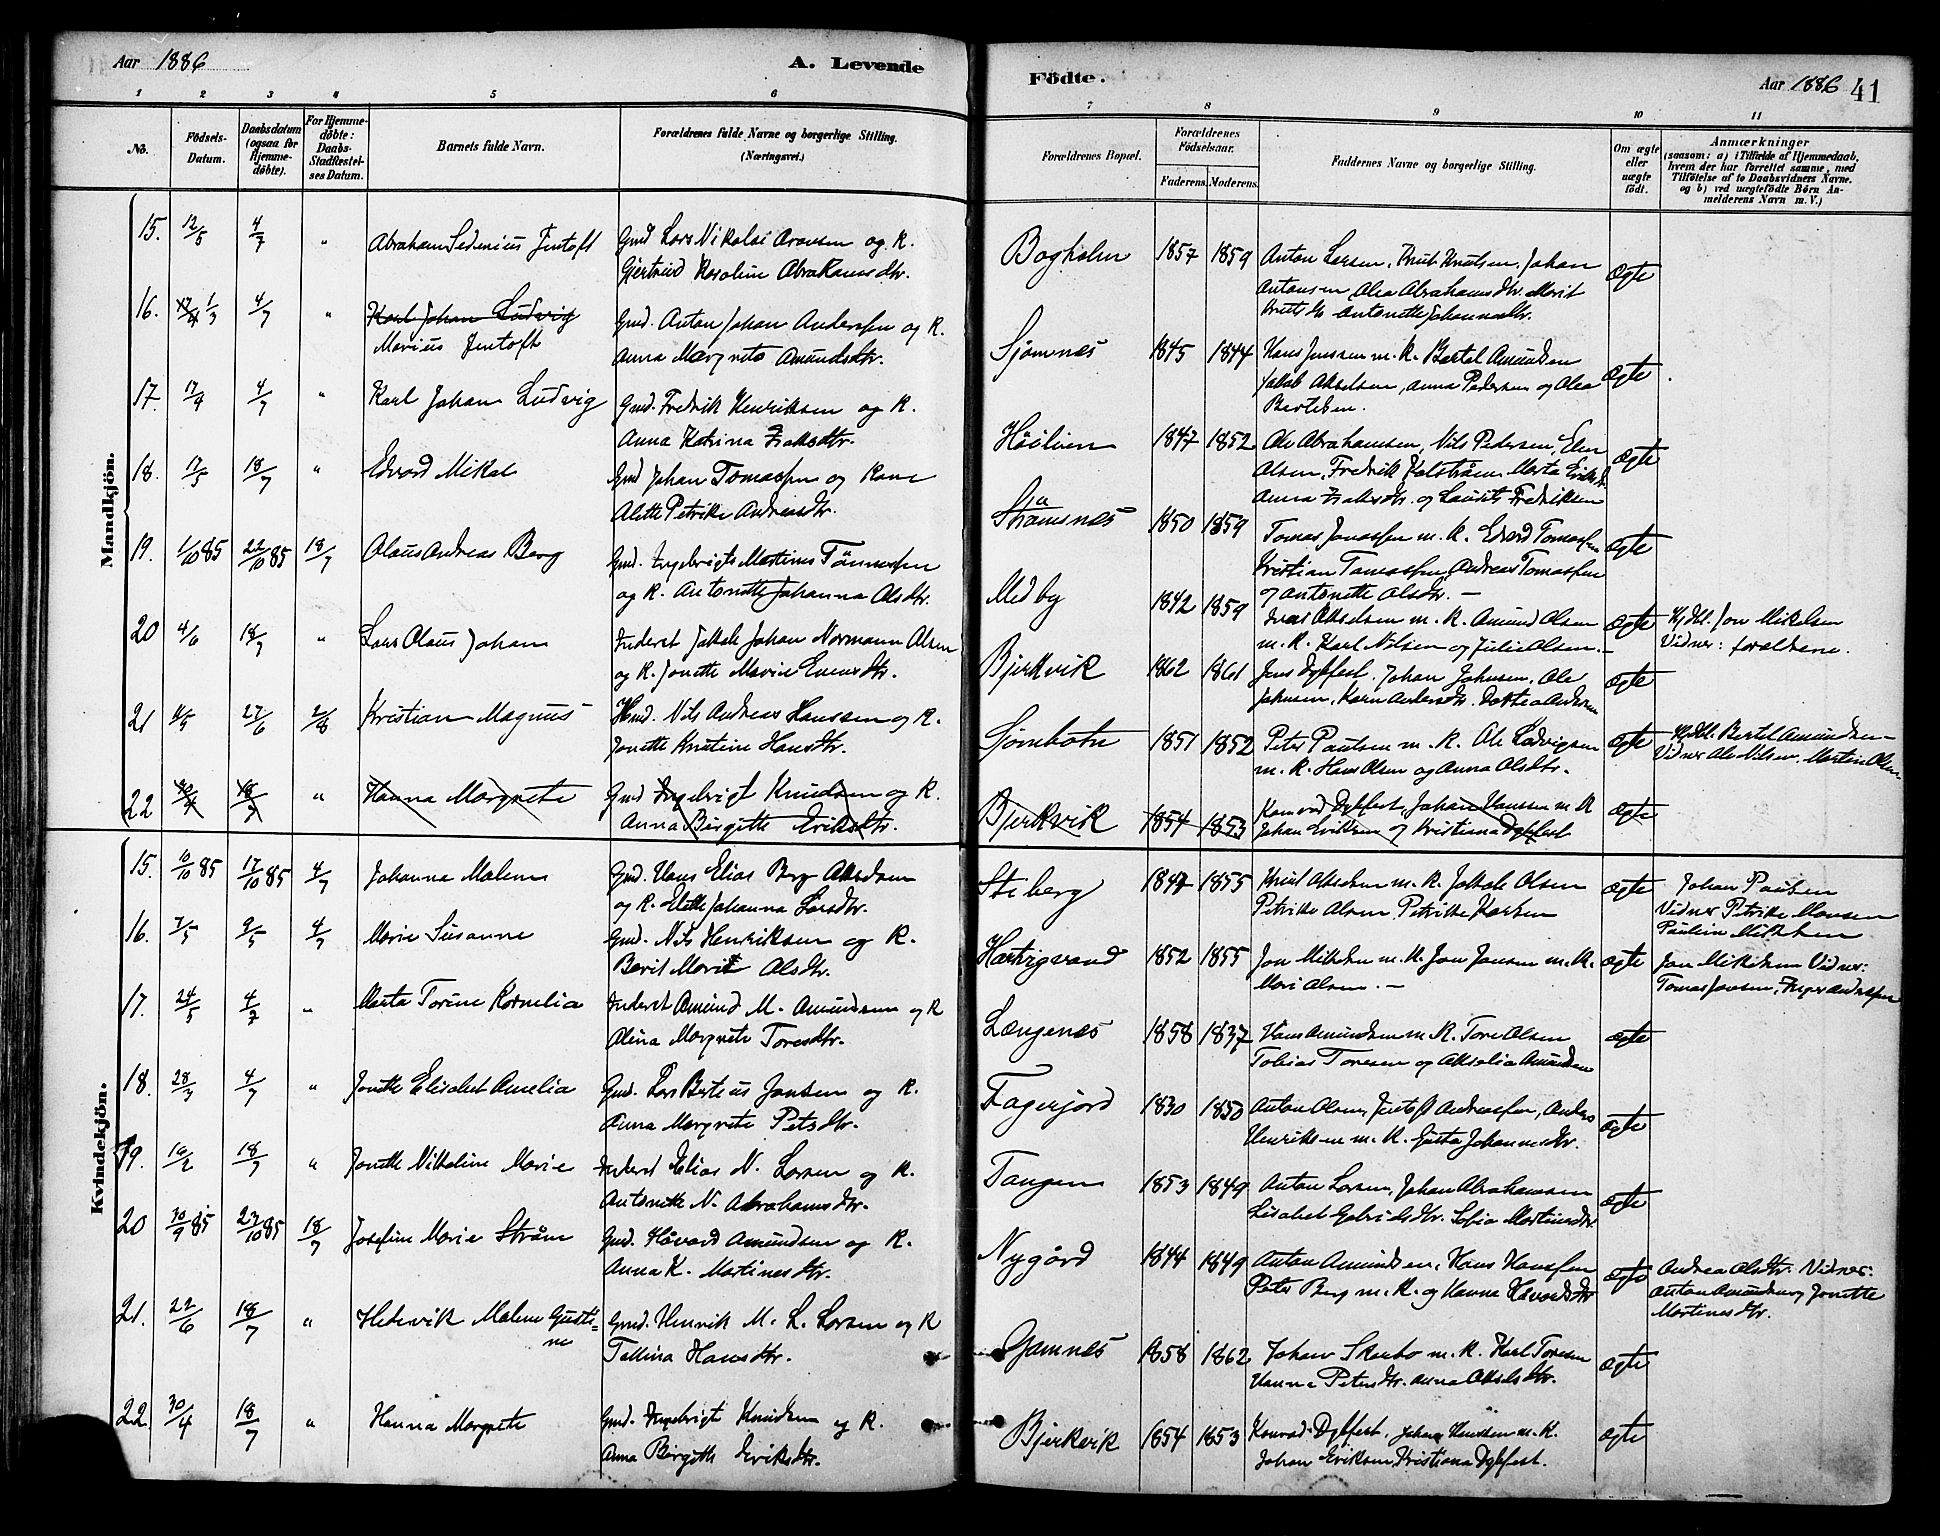 Aar 1886
A. Levende
Födte.
Aar 1886
41
1 2 3 4 5 6 7 8 9 10 11
No.
Födsels-Datum.
Daabsdatum (ogsaa for Hjemme-döbte).
For Hjemme-döbte: Daabs-Stadfæstel-ses Datum.
Barnets fulde Navn.
Forældrenes fulde Navne og borgerlige Stilling. (Næringsvei.)
Forældrenes Bopæl.
Forældrenes Födselsaar.
Faderens. Moderens.
Faddernes Navne og borgerlige Stilling.
Om ægte eller uægte födt.
Anmærkninger
(saasom: a) i Tilfælde af Hjemmedaab,
hvem der har forrettet samme, med
Tilföielse af to Daabsvidners Navne.
og b) ved uægtefödte Börn An-
melderens Navn m. V.)
Mandkjön.
15. 12/5 4/7 " Abraham Sedenius Jentoft Gmd Lars Nikolai Aronsen og K. Bogholm 1857 1859 Anton Larsen, Knut Knutsen, Johan ægte
Gjertrud Karoline Abrahamsdtr. Antonsen, Alea Abrahamsdtr. Marit
Antonette Johannesdtr.
16. 17/4 1/3 4/7 " Karl Johan Ludvig Gmd. Anton Johan Anderssen og K. Sjomnes 1845 1844 Hans Jenssen m. K. Bertel Amundsen ægte
Marius Jentoft Anna Margrete Amundsdtr. Jakob Akselsen, Anna Pedersen og Alea
Bertelsen.
17. 17/4 4/7 " Karl Johan Ludvig Gmd. Fredrik Henriksen og K. 1847 1852 Ole Abrahamsen, Nils Pedersen, Elen ægte
Anna Katrina Isaksdtr. Olsen, Fredrik Marta
Anna Isaksdtr. og Laurits Fredriksen
18. 17/5 18/7 " Edvard Mikal Gmd Johan Tomassen og Kone Strömsnes 1850 1859 Tomas Jonassen m. K. Edvard Tomassen ægte
Alette Petrike Andreasdtr. Kristian Tomassen, Andreas Tomassen
og Antonette Olsdtr. —
19. 1/10 85 22/10 85 18/7 Olaus Andreas Berg Gmd. Ingebrigt Martinus Tönnessen Medby 1842 1859 Akselsen m. K. Amund Olsen ægte Hjdbt. Jon Mikelsen
og K. Antonette Johanna Olsdtr. m. K. Karl Nilsen og Julie Olsen. Vidner: forældrene.
20 4/6 18/7 " Lars Olaus Johan Inderst Jakob Johan Normann Olsen Bjerkvik 1862 1861 Jens Dybfest, Johan Johnsen, Ole ægte
og K. Jonette Marie Evensdtr. Johnsen, Karen Andersdtr.
21 4/5 27/6 2/8 Kristian Magnus Hmd. Nils Andreas Hanssen og K. Sjombotn 1851 1852 Peter Paulsen m. K. Ole Ludvigsen ægte Hjdbt. Bertel Amundsen
Jonette Kristine Hansdtr. m. K. Hans Olsen og Anna Olsdtr. Vidner Ole Nilsen, Martin Olsen
22 30/4 18/7 " Hanna Margrete Gmd Ingebrigt Knudsen og K. Bjerkvik 1854 1853 Konrad Dybfest, Johan Hanssen m. K ægte
Anna Birgitte Eriksdtr. Johan Eriksen og Kristiana Dybfest
Kvindekjön.
15. 10/10 85 17/10 85 4/7 Johanna Malene Gmd. Hans Elias Berg Akselsen Stiberg 1847 1855 Knut Akselsen m. K. Jakob Olsen ægte Johan Paulsen
og K. Elette Johanna Larsdtr. Petrike Olsen, Petrike Karlsen Vidner Petrike Monsen
Mikkelsen
16. 7/5 9/5 4/7 Marie Susanne Gmd. Nils Henriksen og K. Hartvigvand 1852 1855 Jon Mikelsen m. K. Jon Jonsen m. K. ægte Jon Mikelsen Vidner:
Berit Marit Olsdtr. Mari Olsen. — Tomas Jonsen,
17. 24/5 4/7 " Marta Torine Kornelia Inderst Amund M. Amundsen og K Længenes 1858 1837 Hans Amundsen m. K. Tore Olsen ægte
Olina Margrete Toresdtr. Tobias Toresen og Akselia Amundsen
18. 28/3 4/7 " Jonette Elisabet Amelia Gmd. Lars Berteus Jonsen og K. Fagerjord 1830 1850 Anton Olsen, Jentoft Andreassen, Anders ægte
Anna Margrete Petersdtr. Henriksen m. K. Gusta Johannesdtr.
19. 16/2 18/7 " Jonette Nikoline Marie Inderst Elias N. Larsen og K. Tangen 1853 1849 Anton Larsen, Johan Abrahamsen ægte
Antonette N. Abrahamsdtr. Lisabet Gabrielsdtr. Sofia Martinusdtr.
20 30/9 85 23/10 85 18/7 Josefine Marie Ström Gmd. Håvard Amundsen og K. Nygård 1844 1849 Anton Amundsen, Hans Hanssen ægte Andrea Olsdtr. Vidner:
Anna K. Martinesdtr. Peter Berg m. K. og Hanna Håvardsdtr Anton Amundsen og Jonette
Martinesdtr.
21. 22/6 18/7 " Hedevik Malene Gusti= Gmd. Henrik M. L. Larsen og K Gamnes 1858 1862 Johan Skarbo m. K. Karl Toresen ægte
ne Tallina Hansdtr. Hanna Petersdtr. Anna Akselsdtr.
22. 30/4 18/7 " Hanna Margrete Gmd. Ingebrigt Knudsen og K. Bjerkvik 1854 1853 Konrad Dybfest, Johan Hanssen m. K. ægte
Anna Birgitte Eriksdtr. Johan Eriksen, Kristiana Dybfest.